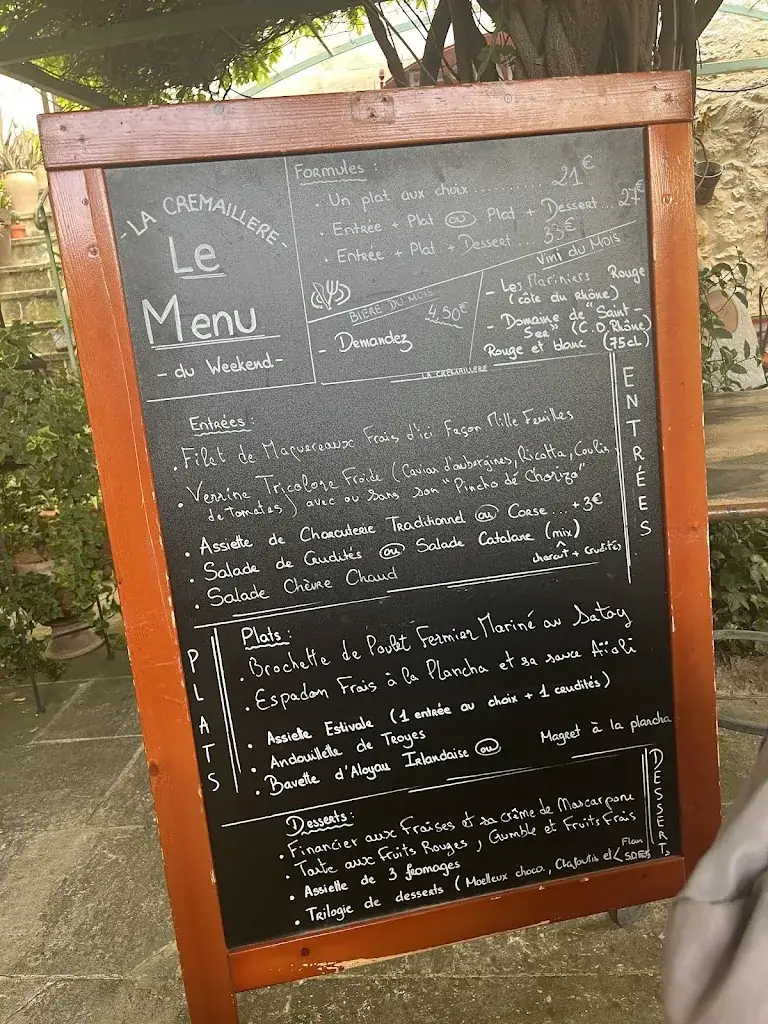 - LA CREMAILLERE -
Le
Menu
- du Weekend -
Formules :
• Un plat aux choix .......... 21€
• Entrée + Plat ou Plat + Dessert... 27€
• Entrée + Plat + Dessert.... 33€
BIERE DU MOIS
4,50€
- Demandez
Vint du Mois
- Les Mariniers Rouge
(côte du Rhône)
- Domaine de "Saint-
Ser" (C.D.Rhône)
Rouge et blanc (75cl)
LA CREMAILLERE
ENTRÉES
Entrées :
• Filet de Maquereaux Frais d'ici Façon Mille Feuilles
• Verrine Tricolore Froide (Caviar d'aubergines, Ricotta, Coulis
de Tomates) avec ou sans son "Pincho dé Chorizo"
• Assiette de Charcuterie Traditionnel ou Corse... +3€
• Salade de Crudités ou Salade Catalane (mix)
charcut + crudités
• Salade Chèvre Chaud
PLATS
Plats :
• Brochette de Poulet Fermier Mariné au Satay
• Espadon Frais à la Plancha et sa sauce Aïoli
• Assiette Estivale (1 entrée au choix + 1 crudités)
• Andouillette de Troyes
• Bavette d'Aloyau Irlandaise ou Magret à la plancha
DESSERTS
Desserts :
• Financier aux Fraises et sa crème de Mascarpone
• Tarte aux Fruits Rouges, Crumble et Fruits Frais
• Assiette de 3 fromages
• Trilogie de desserts (Moelleux choco., Clafoutis et Flan